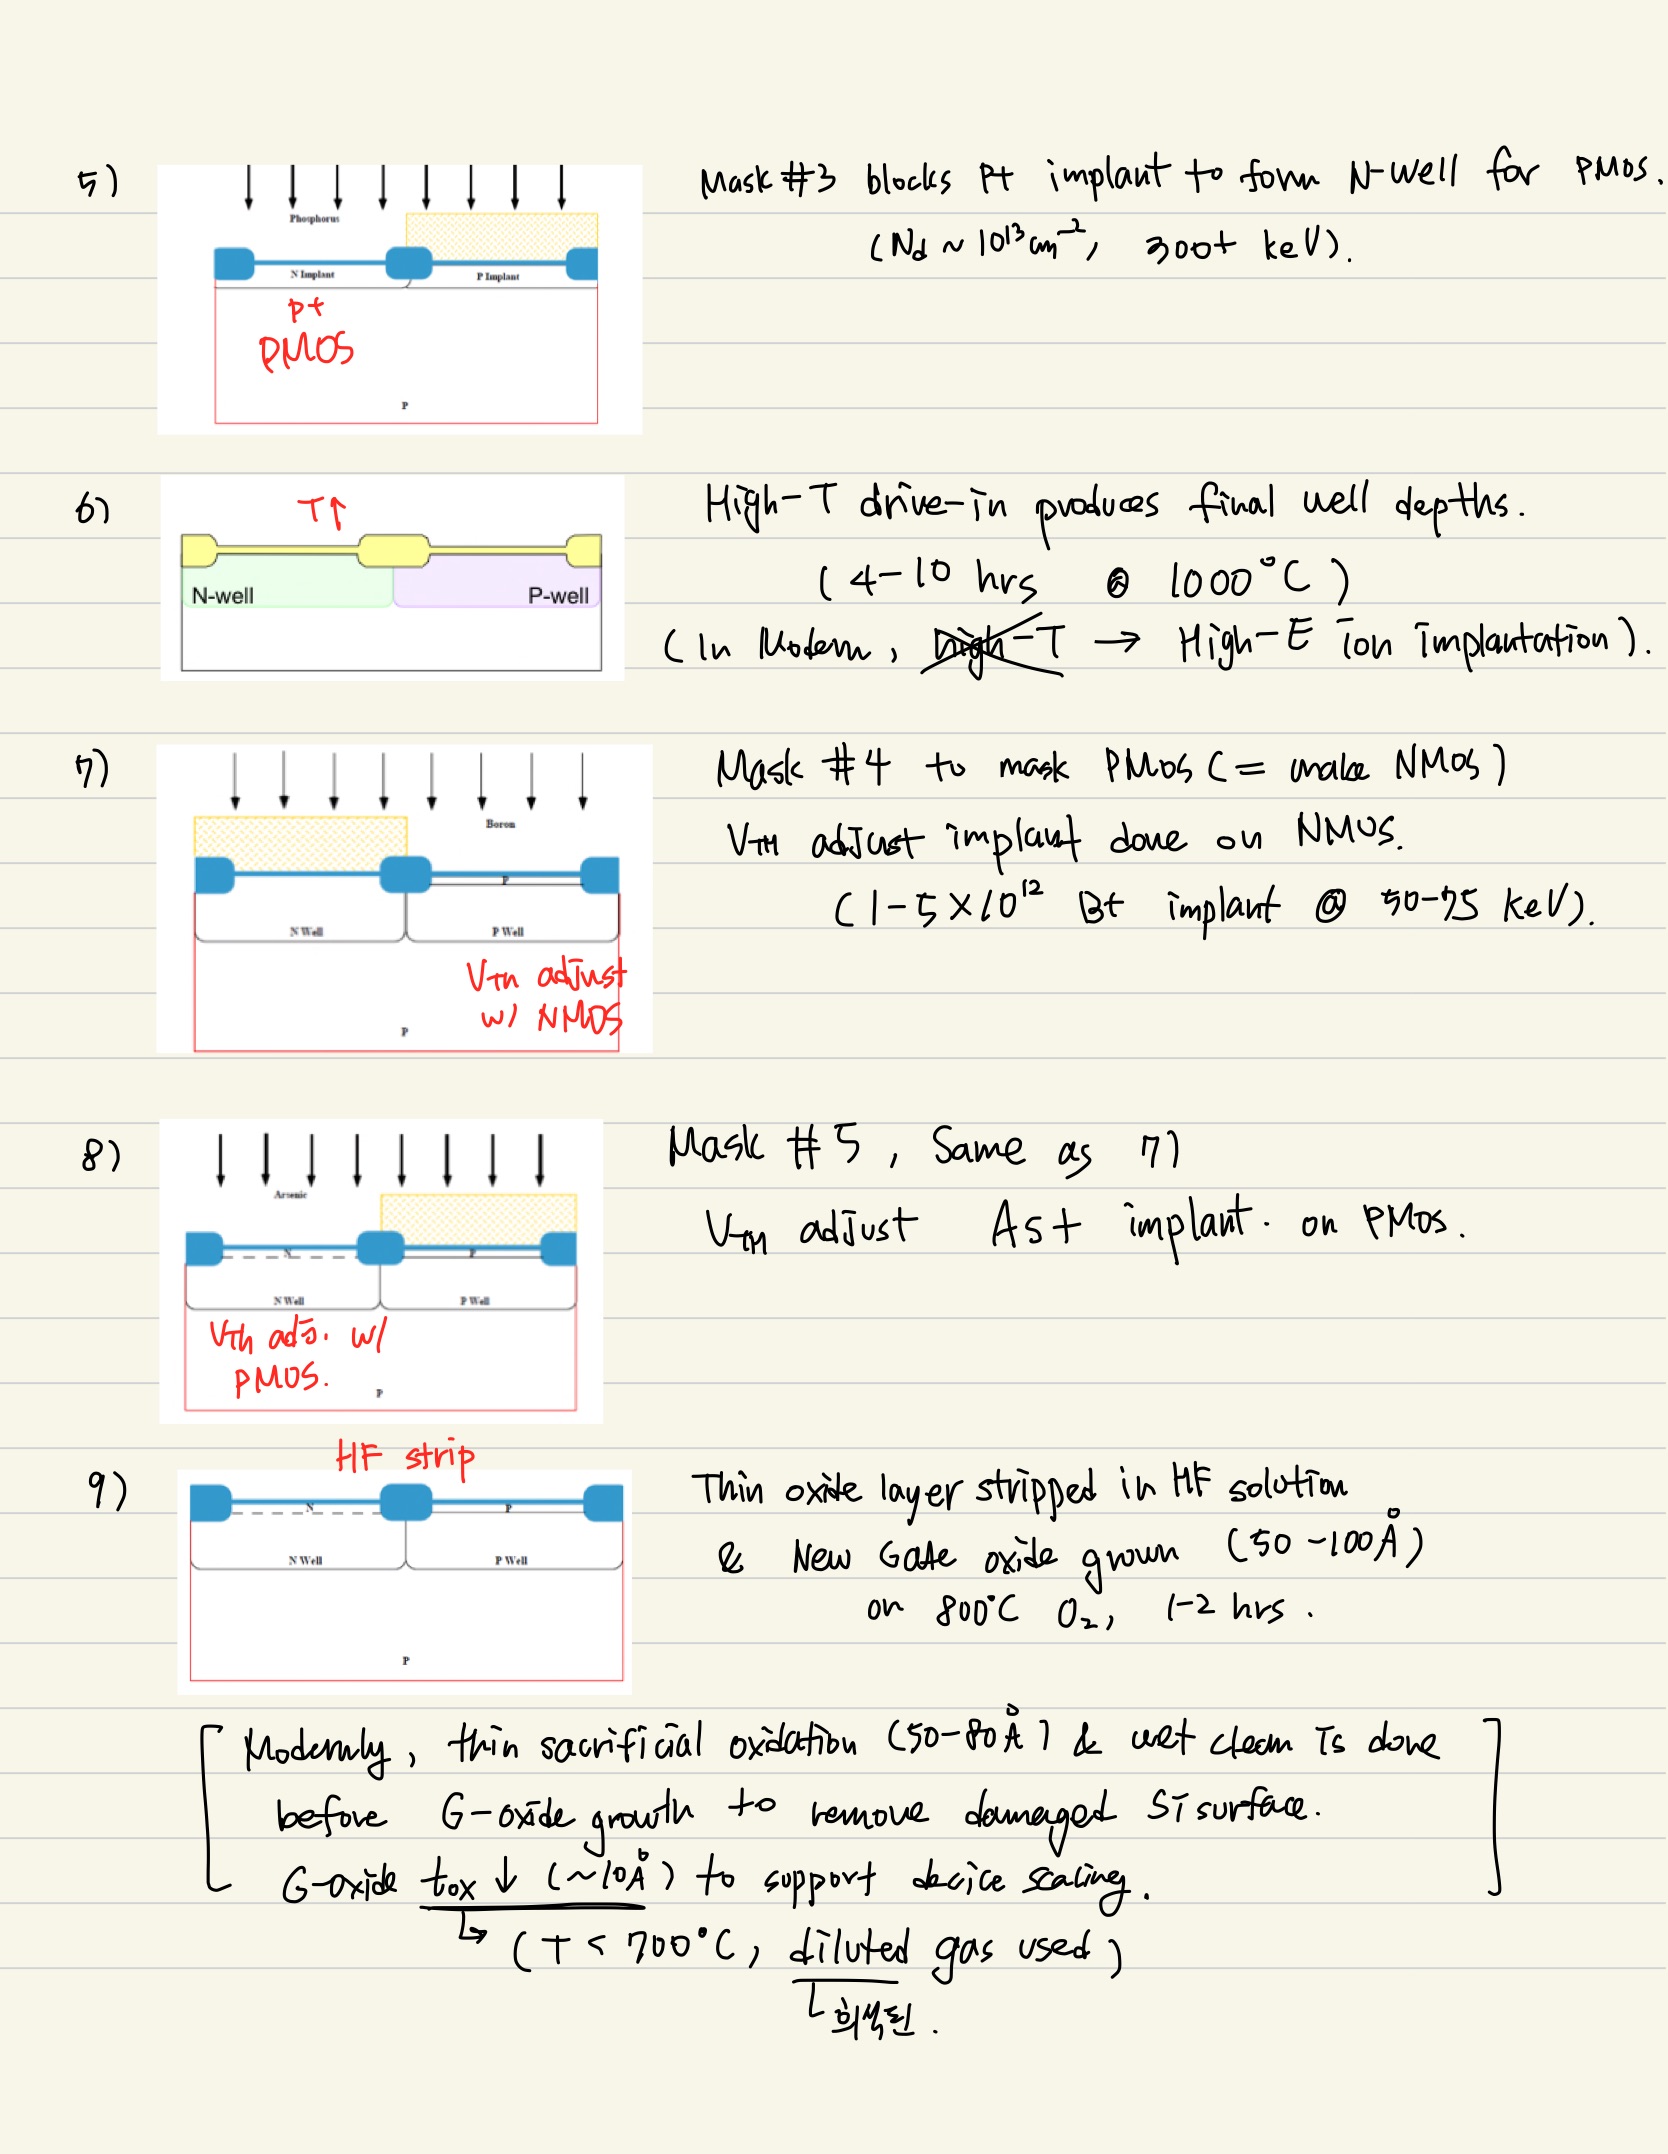 5)
Phosphorus
N Implant
P Implant
P+
PMOS
P
Mask #3 blocks P+ implant to form N-well for PMOS.
(Nd ~ 10¹³ cm⁻², 300+ keV).
6)
T↑
N-well
P-well
High-T drive-in produces final well depths.
(4-10 hrs @ 1000°C)
(In Modern, high-T → High-E ion implantation).
7)
Boron
P
N Well
P Well
VTH adjust
w/ NMOS
P
Mask #4 to mask PMOS (= make NMOS)
VTH adjust implant done on NMOS.
(1-5×10¹² B+ implant @ 50-75 keV).
8)
Arsenic
N
P
N Well
P Well
VTh adj. w/
PMOS.
P
Mask #5, Same as 7)
VTH adjust As+ implant. on PMOS.
9)
HF strip
N
P
N Well
P Well
P
Thin oxide layer stripped in HF solution
& New Gate oxide grown (50-100Å)
on 800°C O₂, 1-2 hrs.
[Modernly, thin sacrificial oxidation (50-80Å) & wet clean is done
before G-oxide growth to remove damaged Si surface.
G-oxide tox ↓ (~10Å) to support device scaling.]
↳ (T < 700°C, diluted gas used)
희석된.